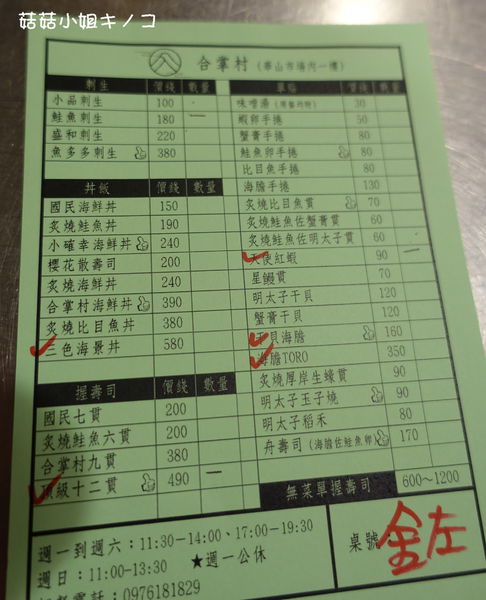 菇菇小姐キノコ
合掌村 (華山市場內一樓)
刺生 價錢 數量
小品刺生 100
鮭魚刺生 180 一
盛和刺生 220
魚多多刺生 380
丼飯 價錢 數量
國民海鮮丼 150
炙燒鮭魚丼 190
小確幸海鮮丼 240
櫻花散壽司 200
炙燒海鮮丼 240
合掌村海鮮丼 390
炙燒比目魚丼 380
三色海景丼 580
握壽司 價錢 數量
國民七貫 200
炙燒鮭魚六貫 200
合掌村九貫 380
頂級十二貫 490 一
單點 價錢 數量
味噌湯 30
蝦卵手捲 50
蟹膏手捲 80
鮭魚卵手捲 80
比目魚手捲 80
海膽手捲 130
炙燒比目魚貫 70
炙燒鮭魚佐蟹膏貫 60
炙燒鮭魚佐明太子貫 60
天使紅蝦 90 一
星鰻貫 70
明太子干貝 120
蟹膏干貝 110
干貝海膽 160
海膽TORO 350
炙燒厚岸生蠔貫 90
明太子玉子燒 90
明太子稻禾 80
舟壽司 (海膽佐鮭魚卵) 170
無菜單握壽司 600～1200
週一到週六：11:30-14:00、17:00-19:30
週日：11:00-13:30 ★週一公休
電話：0976181829
桌號：
左